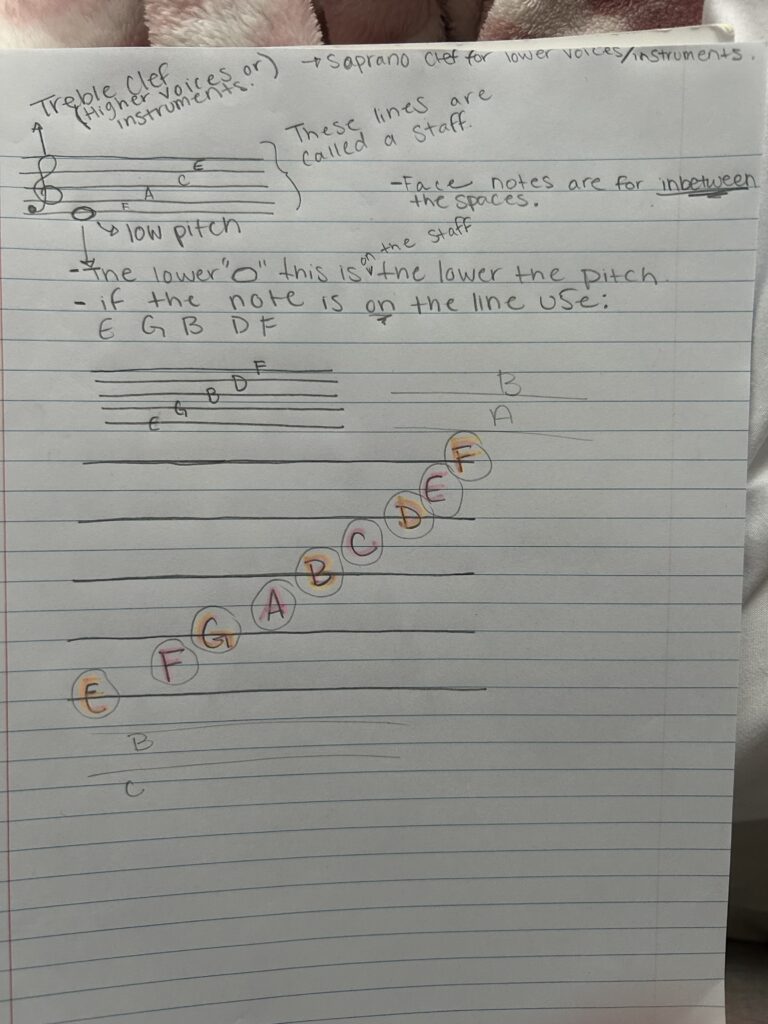 Treble Clef → Saprano Clef for lower voices/instruments.
(Higher voices or)
instruments.
These lines are
called a staff.
E
C
A
F
-Face notes are for inbetween
the spaces.
low pitch
- The lower "O" this is on the staff the lower the pitch.
- if the note is on the line use:
E G B D F
F
D
B
G
E
B
A
F
E
D
C
B
A
G
F
E
B
C